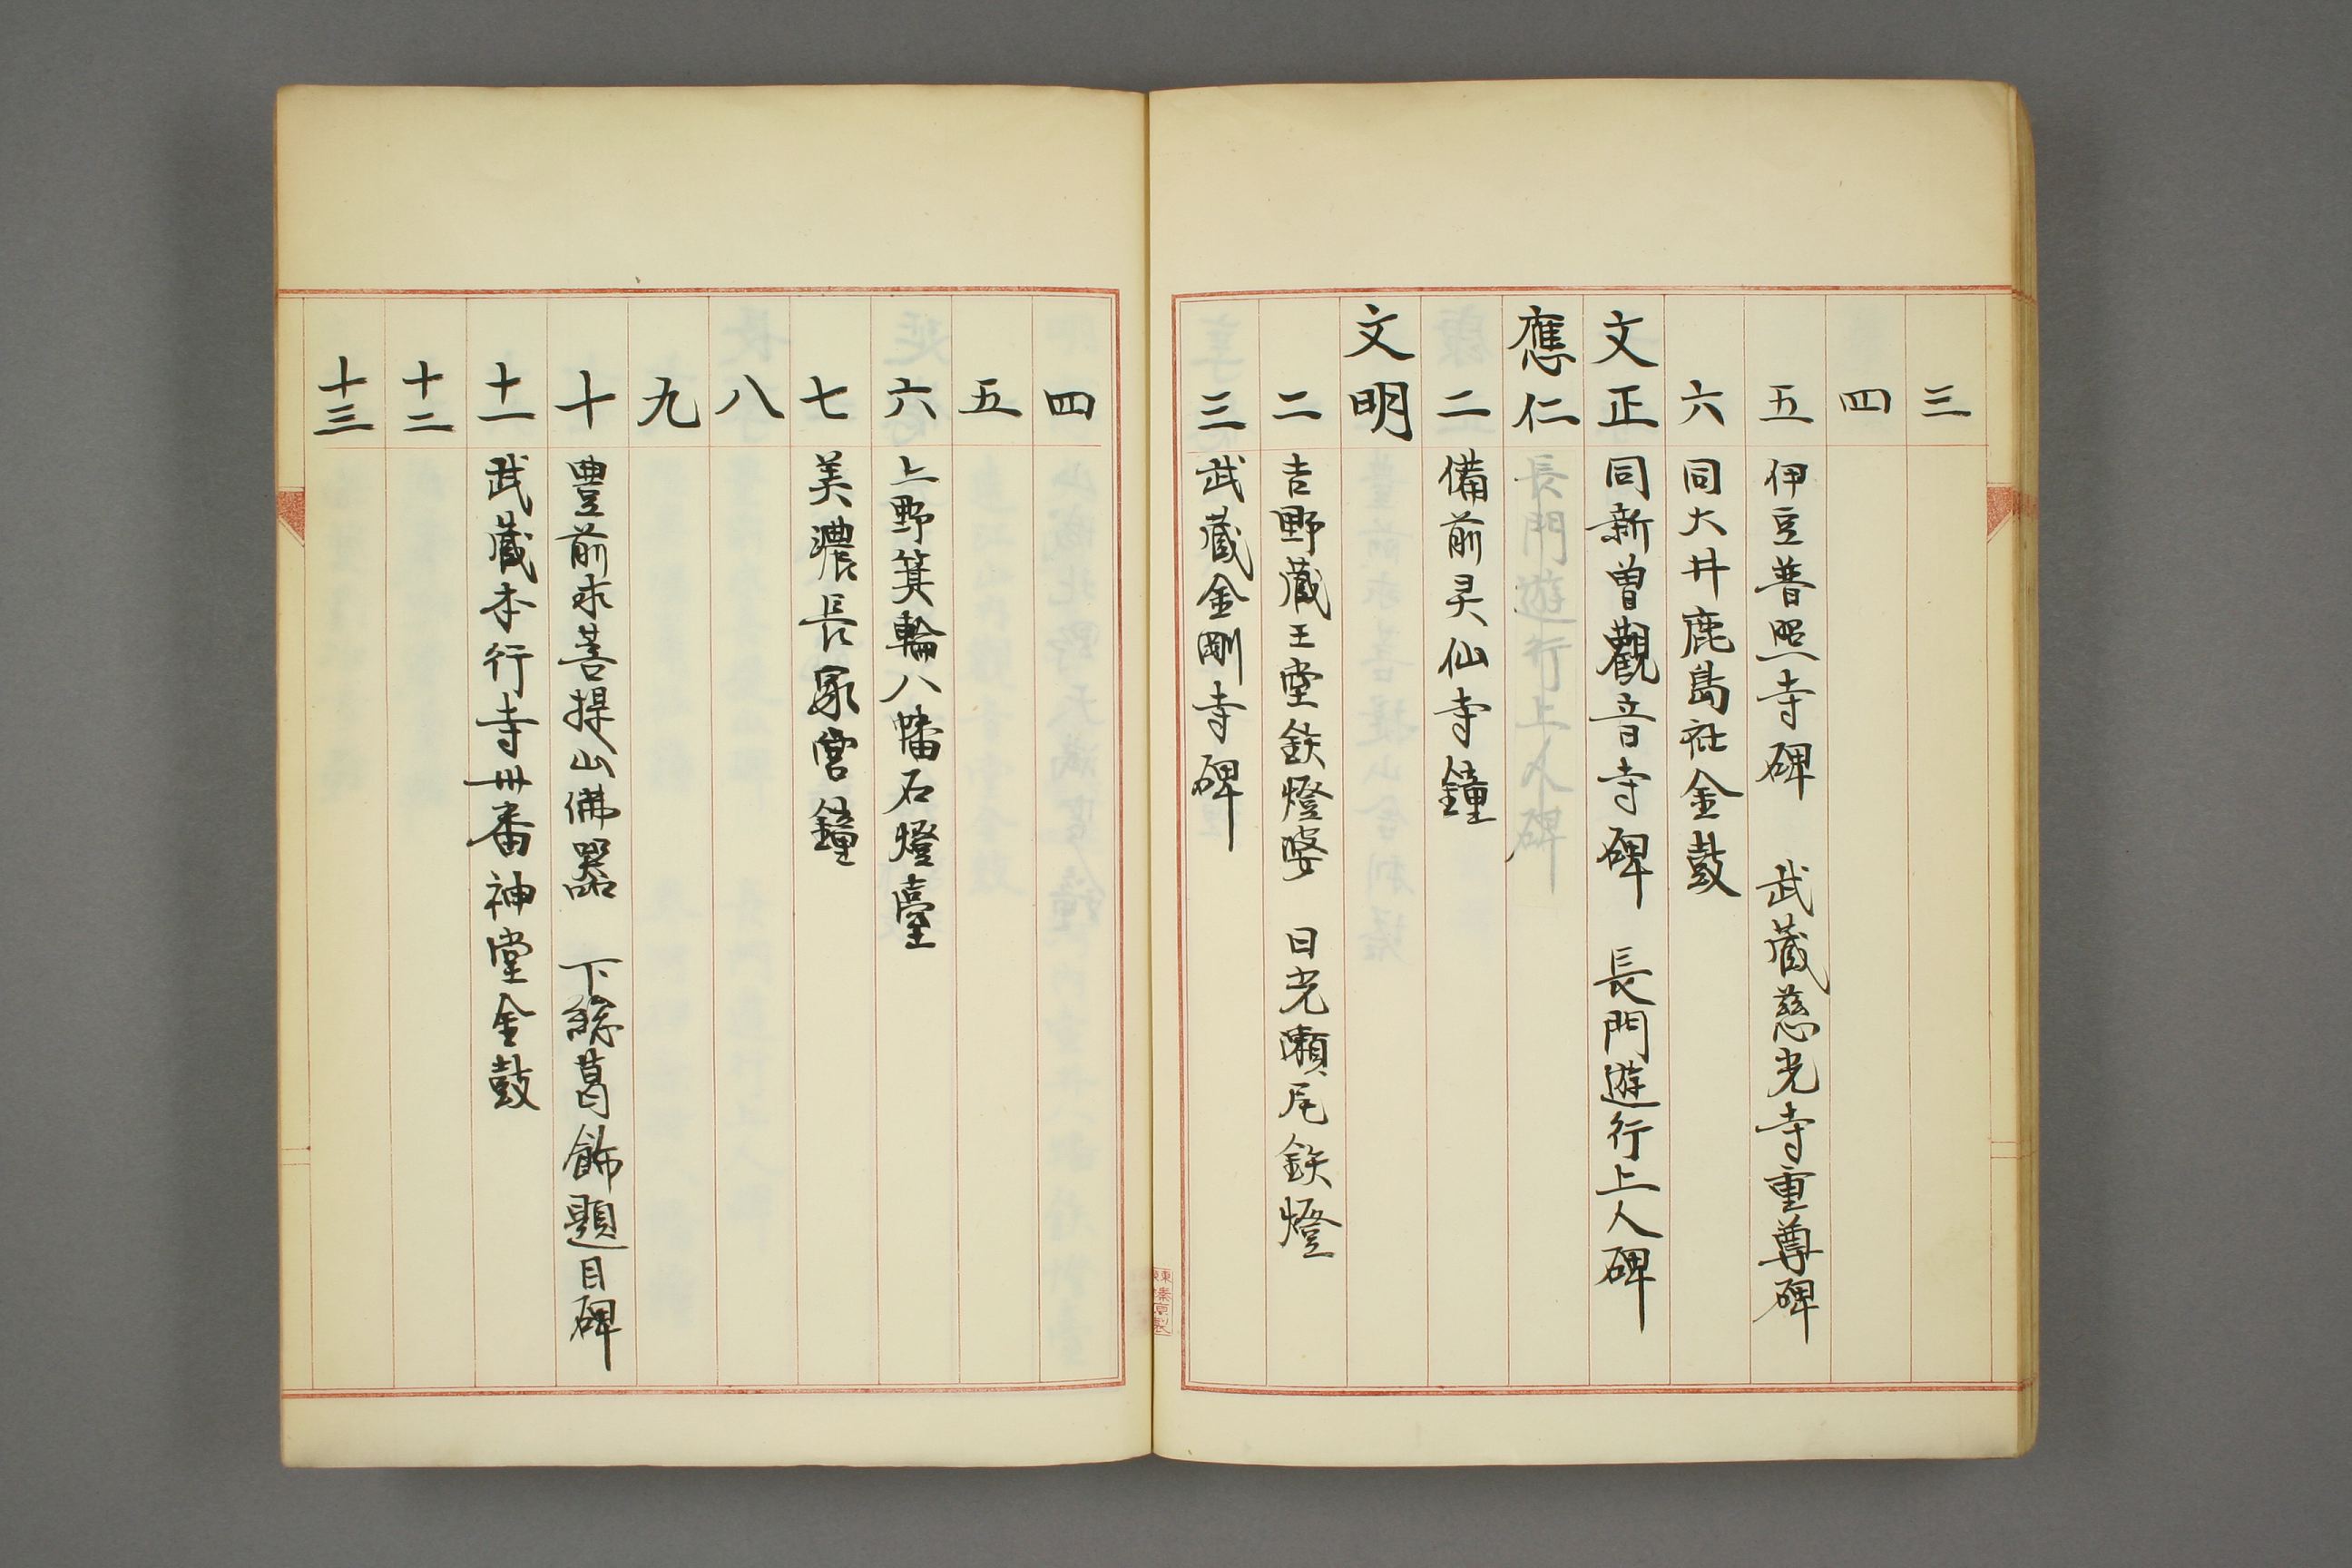 三
四
五 伊豆普照寺碑 武蔵慈光寺重尊碑
六 同大井鹿島社金鼓
文正 同新曽觀音寺碑 長門遊行上人碑
應仁 長門遊行上人碑
二 備前灵仙寺鐘
文明
二 吉野蔵王堂鉄燈 日光瀬尾鉄燈
三 武蔵金剛寺碑
四
五
六 上野箕輪八幡石燈臺
七 美濃長冢宮鐘
八
九
十 豊前求菩提山佛器 下総葛飾題目碑
十一 武蔵本行寺卅番神堂金鼓
十二
十三